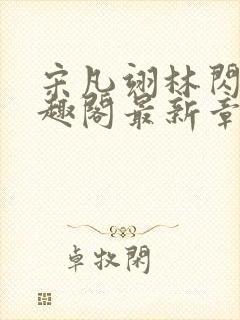 宋凡翊林閃
趣閣最新章
卓牧閑